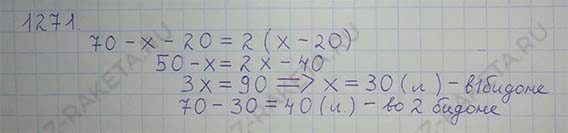 1271.
70 - x - 20 = 2 (x - 20)
50 - x = 2x - 40
3x = 90 => x = 30 (л.) - в 1 бидоне
70 - 30 = 40 (л.) - во 2 бидоне